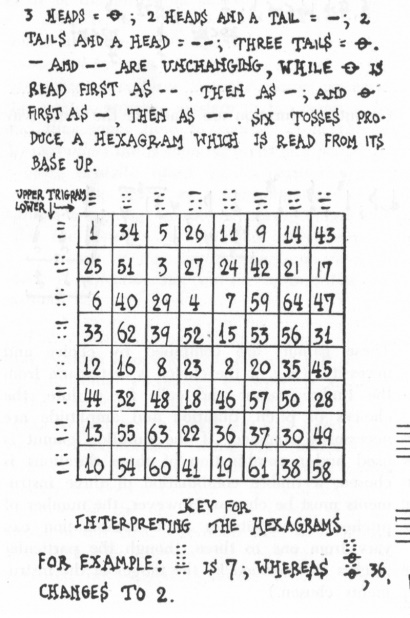 3 HEADS = ⦵ ; 2 HEADS AND A TAIL = — ; 2
TAILS AND A HEAD = -- ; THREE TAILS = ⦵.
— AND -- ARE UNCHANGING, WHILE ⦵ IS
READ FIRST AS -- , THEN AS — ; AND ⦵
FIRST AS — , THEN AS -- . SIX TOSSES PRO-
DUCE A HEXAGRAM WHICH IS READ FROM ITS
BASE UP.
UPPER TRIGRAM ☰ ☳ ☵ ☶ ☷ ☴ ☲ ☱
LOWER ↓→
☰ 1 34 5 26 11 9 14 43
☳ 25 51 3 27 24 42 21 17
☵ 6 40 29 4 7 59 64 47
☶ 33 62 39 52 15 53 56 31
☷ 12 16 8 23 2 20 35 45
☴ 44 32 48 18 46 57 50 28
☲ 13 55 63 22 36 37 30 49
☱ 10 54 60 41 19 61 38 58
KEY FOR
INTERPRETING THE HEXAGRAMS.
FOR EXAMPLE: ䷆ IS 7 ; WHEREAS , 36,
CHANGES TO 2.